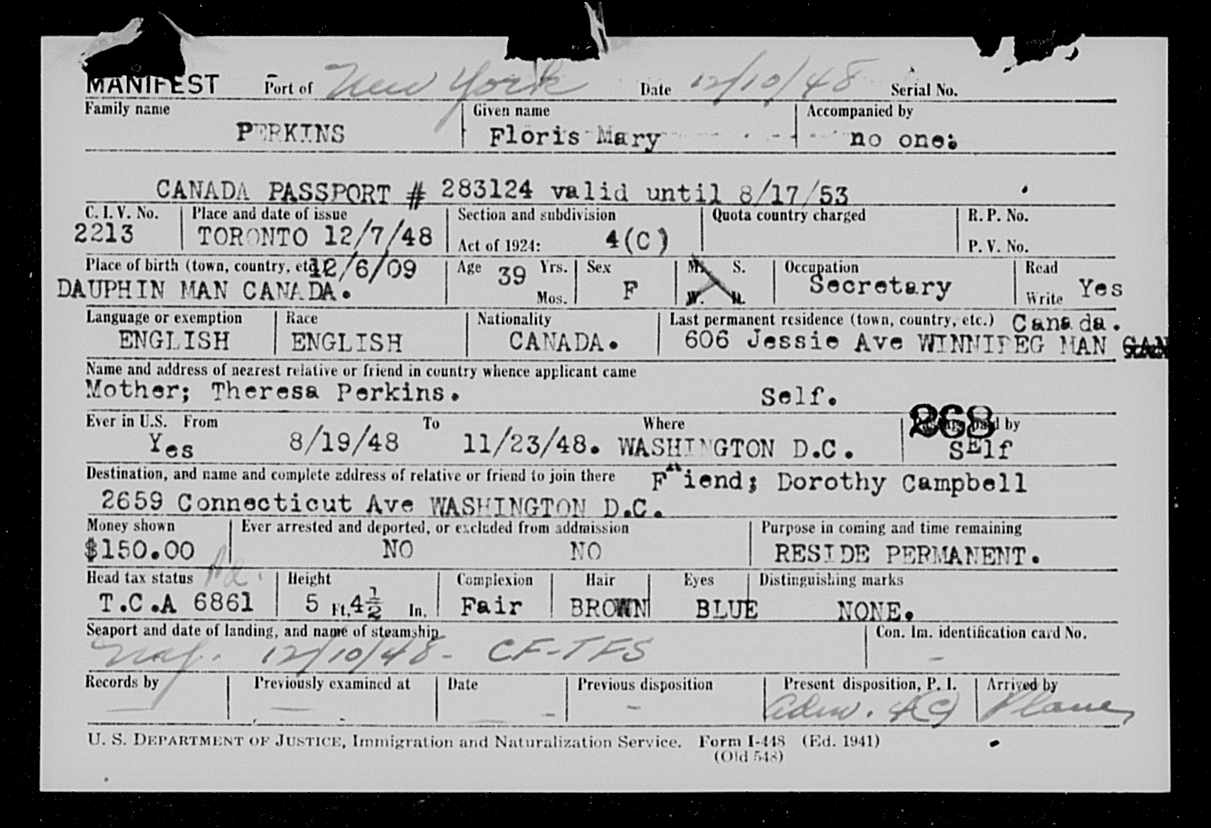 MANIFEST Port of New York Date 12/10/48 Serial No.
Family name Given name Accompanied by
PERKINS Floris Mary no one.
CANADA PASSPORT # 283124 valid until 8/17/53
C. I. V. No. Place and date of issue Section and subdivision Quota country charged R. P. No.
2213 TORONTO 12/7/48 Act of 1924: 4(C) P. V. No.
Place of birth (town, country, etc.) 12/6/09 Age 39 Yrs. Sex M. S. Occupation Read
DAUPHIN MAN CANADA. Mos. F W. D. Secretary Write Yes
Language or exemption Race Nationality Last permanent residence (town, country, etc.) Canada.
ENGLISH ENGLISH CANADA. 606 Jessie Ave WINNIPEG MAN CAN
Name and address of nearest relative or friend in country whence applicant came
Mother; Theresa Perkins. Self.
Ever in U.S. From To Where by
Yes 8/19/48 11/23/48. WASHINGTON D.C. 268 SElf
Destination, and name and complete address of relative or friend to join there Friend; Dorothy Campbell
2659 Connecticut Ave WASHINGTON D.C.
Money shown Ever arrested and deported, or excluded from admission Purpose in coming and time remaining
$150.00 NO NO RESIDE PERMANENT.
Head tax status Pd. Height Complexion Hair Eyes Distinguishing marks
T.C.A 6861 5 Ft. 4½ In. Fair BROWN BLUE NONE.
Seaport and date of landing, and name of steamship Con. Im. identification card No.
12/10/48 - CF-TFS -
Records by Previously examined at Date Previous disposition Present disposition, P. I. Arrived by
— — — - adm. 4(C) Plane
U. S. DEPARTMENT OF JUSTICE, Immigration and Naturalization Service. Form I-448 (Ed. 1941)
(Old 548)